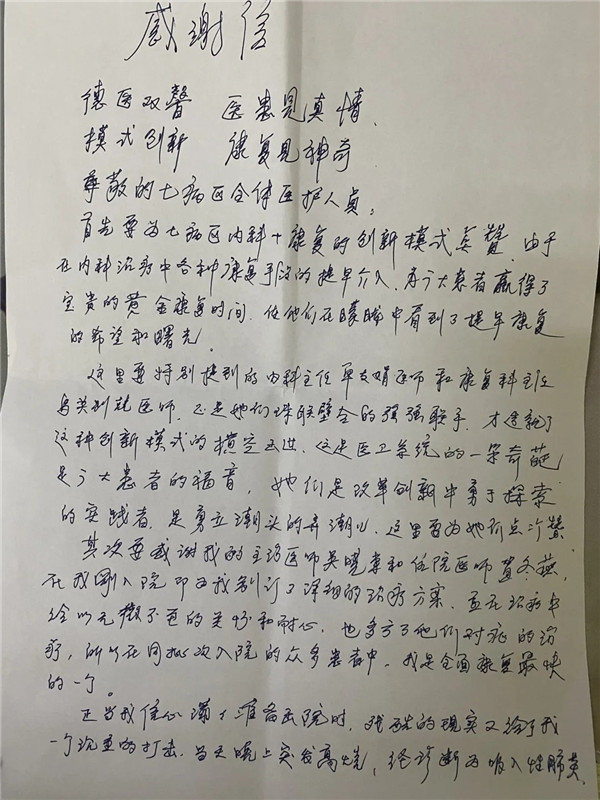 感谢信
德医双馨 医患见真情、
模式创新 康复见神奇
尊敬的七病区全体医护人员：
首先要为七病区内科+康复的创新模式点赞，由于
在内科治疗中各种康复手段的提早介入，为广大患者赢得了
宝贵的黄金康复时间，使他们在朦胧中看到了提早康复
的希望和曙光。
这里要特别提到的内科主任单 娟医师和康复科主任
医师，正是她们珠联璧合的强强联手，才造就了
这种创新模式的横空出世，这是医卫系统的一朵奇葩
是广大患者的福音，她们是改革创新中勇于探索
的实践者，是勇立潮头的弄潮儿，这里要为她们点个赞
其次要感谢我的主治医师吴晓 和住院医师 冬燕，
在我刚入院即为我制订了详细的治疗方案，并在治疗中
给以无微不至的关怀和耐心，也多亏了他们对症的治
疗，所以在同批次入院的众多患者中，我是全面康复最快
的一个。
正当我信心满满准备出院时，残酷的现实又给了我
一个沉重的打击，当天晚上突发高烧，经诊断为吸入性肺炎，